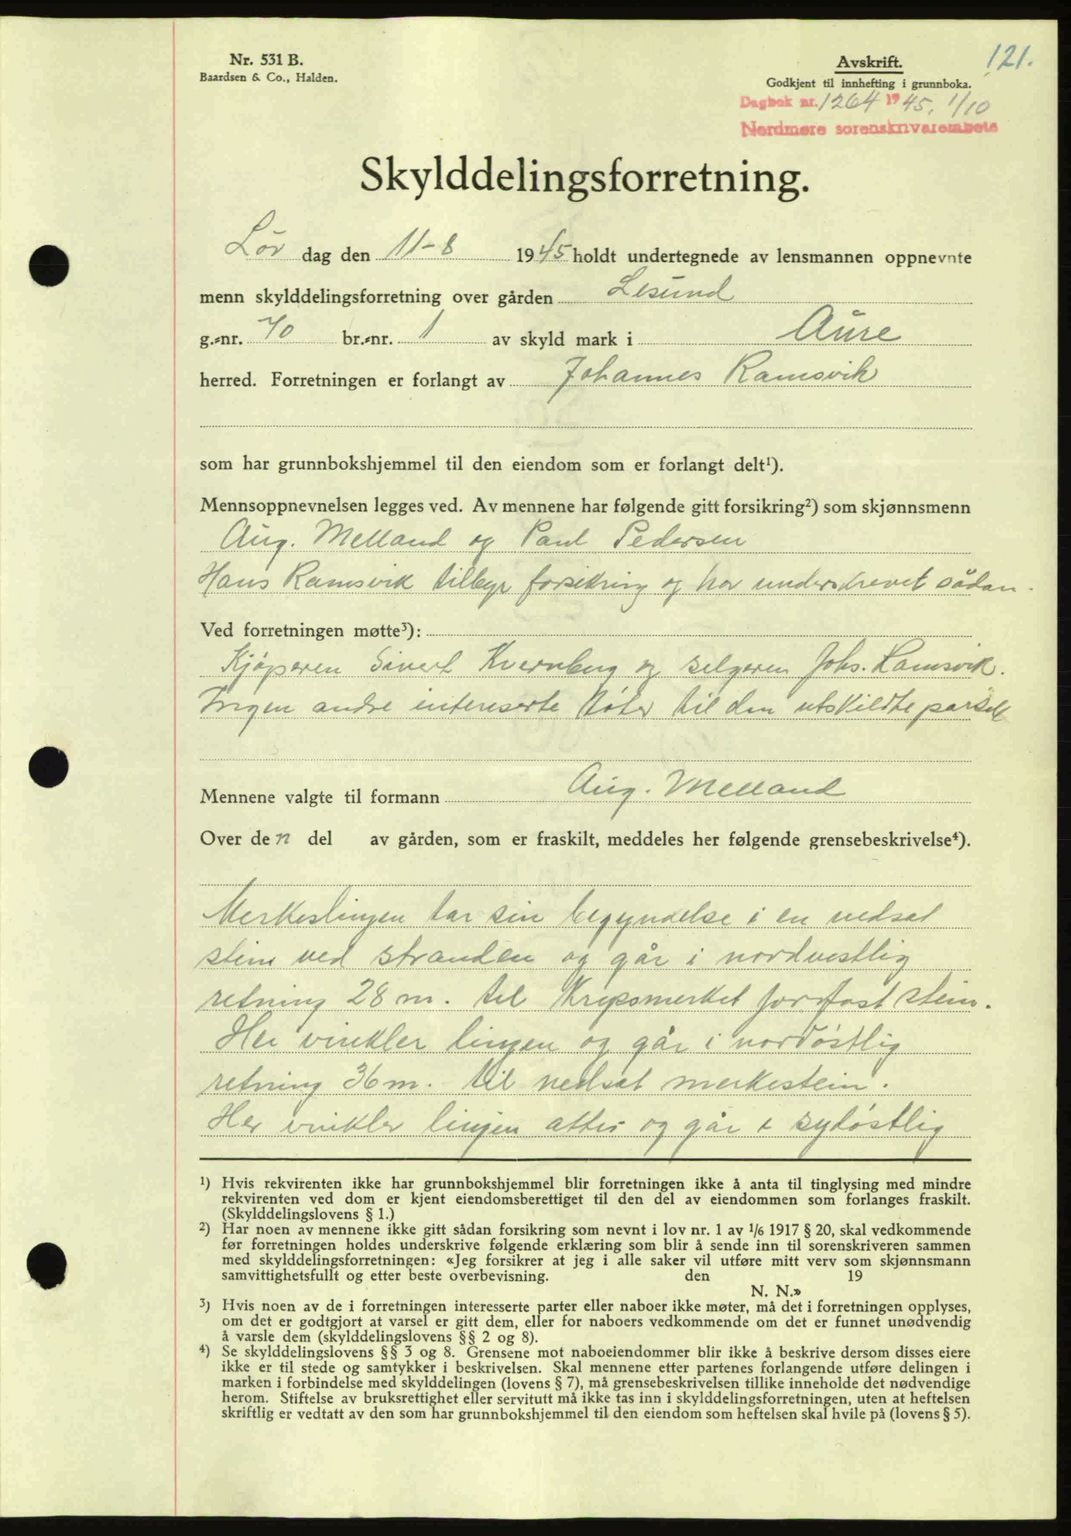 Nr. 531 B.
Baardsen & Co., Halden.
Avskrift.
121.
Godkjent til innhefting i grunnboka.
Dagbok nr. 1264 1945, 1/10
Nordmøre sorenskriverembete
Skylddelingsforretning.
Lør dag den 11-8 1945 holdt undertegnede av lensmannen oppnevnte
menn skylddelingsforretning over gården Lesund
g.-nr. 70 br.-nr. 1 av skyld mark i Aure
herred. Forretningen er forlangt av Johannes Ramsvik
som har grunnbokshjemmel til den eiendom som er forlangt delt¹).
Mennsoppnevnelsen legges ved. Av mennene har følgende gitt forsikring²) som skjønnsmenn
Aug. Melland og Paul Pedersen
Hans Ramsvik tilbyr forsikring og har underskrevet sådan.
Ved forretningen møtte³):
Kjøperen Sivert Kvernberg og selgeren Johs. Ramsvik.
Ingen andre interserte støter til den utskildte parsell
Mennene valgte til formann Aug. Melland
Over den del av gården, som er fraskilt, meddeles her følgende grensebeskrivelse⁴).
Merkeslinjen tar sin begyndelse i en nedsat
stein ved stranden og går i nordvestlig
retning 28 m. til Krepsmerket jordfast stein.
Her vinkler linjen og går i nordøstlig
retning 36 m. til nedsat merkestein.
Her vinkler linjen atter og går i sydøstlig
¹) Hvis rekvirenten ikke har grunnbokshjemmel blir forretningen ikke å anta til tinglysing med mindre
rekvirenten ved dom er kjent eiendomsberettiget til den del av eiendommen som forlanges fraskilt.
(Skylddelingslovens § 1.)
²) Har noen av mennene ikke gitt sådan forsikring som nevnt i lov nr. 1 av 1/6 1917 § 20, skal vedkommende
før forretningen holdes underskrive følgende erklæring som blir å sende inn til sorenskriveren sammen
med skylddelingsforretningen: «Jeg forsikrer at jeg i alle saker vil utføre mitt verv som skjønnsmann
samvittighetsfullt og etter beste overbevisning. den 19
N. N.»
³) Hvis noen av de i forretningen interesserte parter eller naboer ikke møter, må det i forretningen opplyses,
om det er godtgjort at varsel er gitt dem, eller for naboers vedkommende om det er funnet unødvendig
å varsle dem (skylddelingslovens §§ 2 og 8).
⁴) Se skylddelingslovens §§ 3 og 8. Grensene mot naboeiendommer blir ikke å beskrive dersom disses eiere
ikke er til stede og samtykker i beskrivelsen. Skal mennene etter partenes forlangende utføre delingen i
marken i forbindelse med skylddelingen (lovens § 7), må grensebeskrivelsen tillike inneholde det nødvendige
herom. Stiftelse av bruksrettighet eller servitutt må ikke tas inn i skylddelingsforretningen, uten at heftelsen
skriftlig er vedtatt av den som har grunnbokshjemmel til den eiendom som heftelsen skal hvile på (lovens § 5).